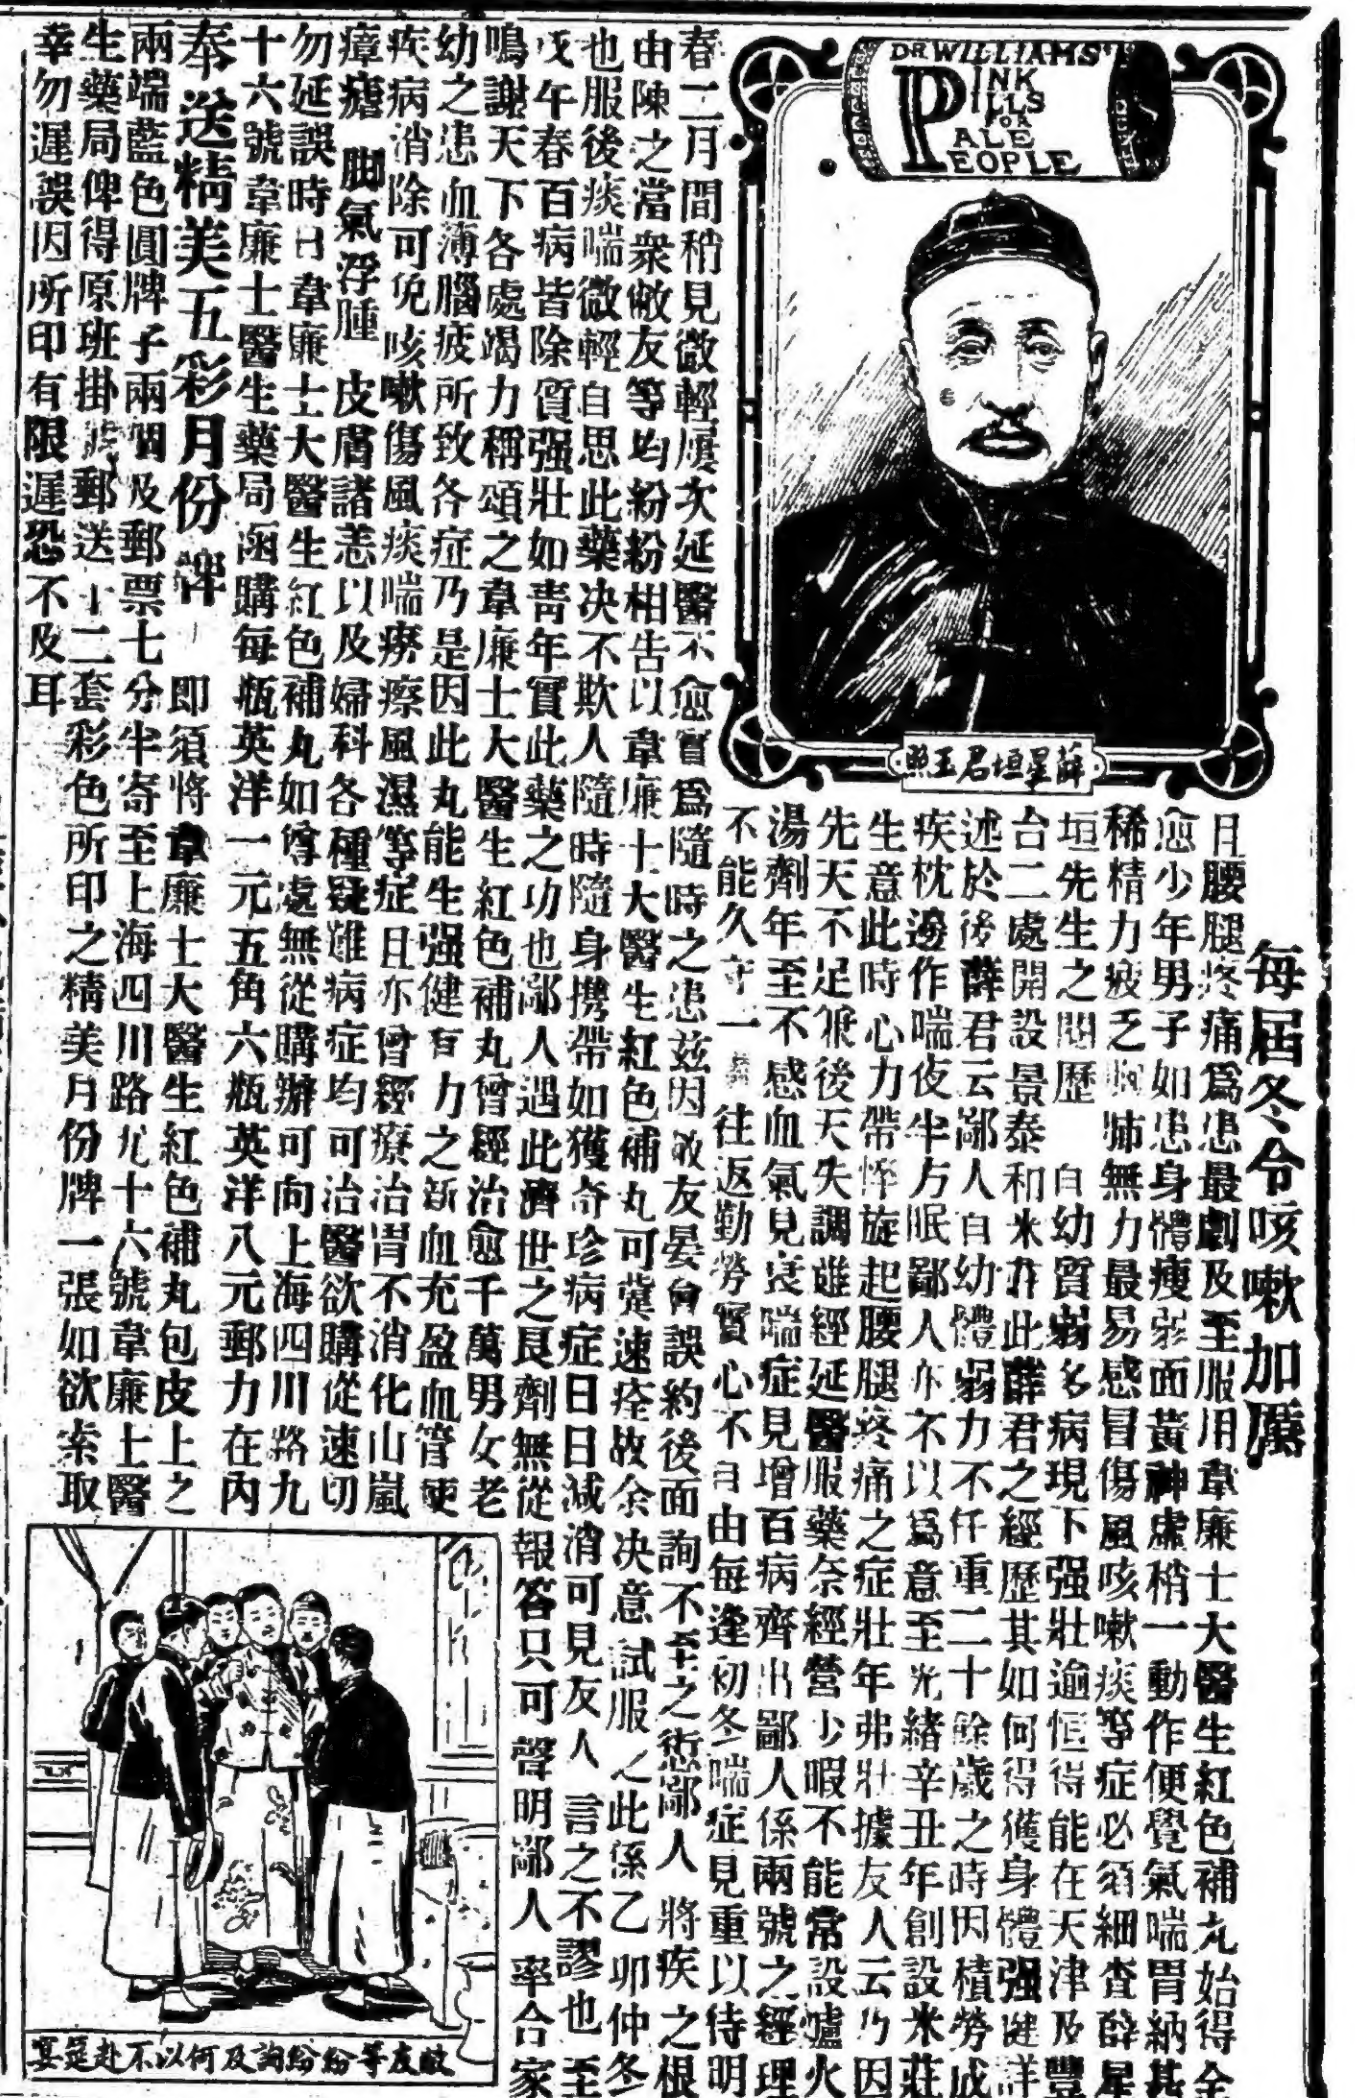 DR WILLIAMS'
PINK
PILLS
FOR
PALE
PEOPLE
薛星垣君玉照
每屆冬令咳嗽加厲
且腰腿疼痛爲患最劇及至服用韋廉士大醫生紅色補丸始得全
愈少年男子如患身體瘦弱面黃神虛稍一動作便覺氣喘胃納甚
稀精力疲乏 肺無力最易感冒傷風咳嗽痰等症必須細查薛星
垣先生之閱歷 自幼質弱多病現下强壯逾恒得能在天津及豐
台二處開設景泰和米莊此薛君之經歷其如何得獲身體强健詳
述於後薛君云鄙人自幼體弱力不任重二十餘歲之時因積勞成
疾枕邊作喘夜半方眠鄙人亦不以爲意至光緒辛丑年創設米莊
生意此時心力帶悴旋起腰腿疼痛之症壯年弗壯據友人云乃因
先天不足兼後天失調雖經延醫服藥奈經營少暇不能常設爐火
湯劑年至不感血氣見衰喘症見增百病齊出鄙人係兩號之經理
不能久守一 往返勤勞實心不自由每逢初冬喘症見重以待明
春二月間稍見微輕屢次延醫不愈實爲隨時之患茲因敝友晏會誤約後面詢不至之愆鄙人將疾之根
由陳之當衆敝友等均紛紛相告以韋廉士大醫生紅色補丸可冀速痊故余决意試服之此係乙卯仲冬
也服後痰喘微輕自思此藥決不欺人隨時隨身攜帶如獲奇珍病症日日減消可見友人言之不謬也至
戊午春百病皆除質强壯如靑年實此藥之功也鄙人遇此濟世之良劑無從報答只可聲明鄙人率合家
鳴謝天下各處竭力稱頌之韋廉士大醫生紅色補丸曾經治愈千萬男女老
幼之患血薄腦疲所致各症乃是因此丸能生强健有力之新血充盈血管使
疾病消除可免咳嗽傷風痰喘癆瘵風濕等症且亦曾經療治胃不消化山嵐
瘴瘧 脚氣浮腫 皮膚諸恙以及婦科各種疑難病症均可治醫欲購從速切
勿延誤時日韋廉士大醫生紅色補丸如尊處無從購辦可向上海四川路九
十六號韋廉士醫生藥局函購每瓶英洋一元五角六瓶英洋八元郵力在內
奉送精美五彩月份牌 即須將韋廉士大醫生紅色補丸包皮上之
兩端藍色圓牌子兩個及郵票七分半寄至上海四川路九十六號韋廉士醫
生藥局俾得原班掛號郵送十二套彩色所印之精美月份牌一張如欲索取
幸勿遲誤因所印有限遲恐不及耳
敝友等紛紛詢及何以不赴筵宴